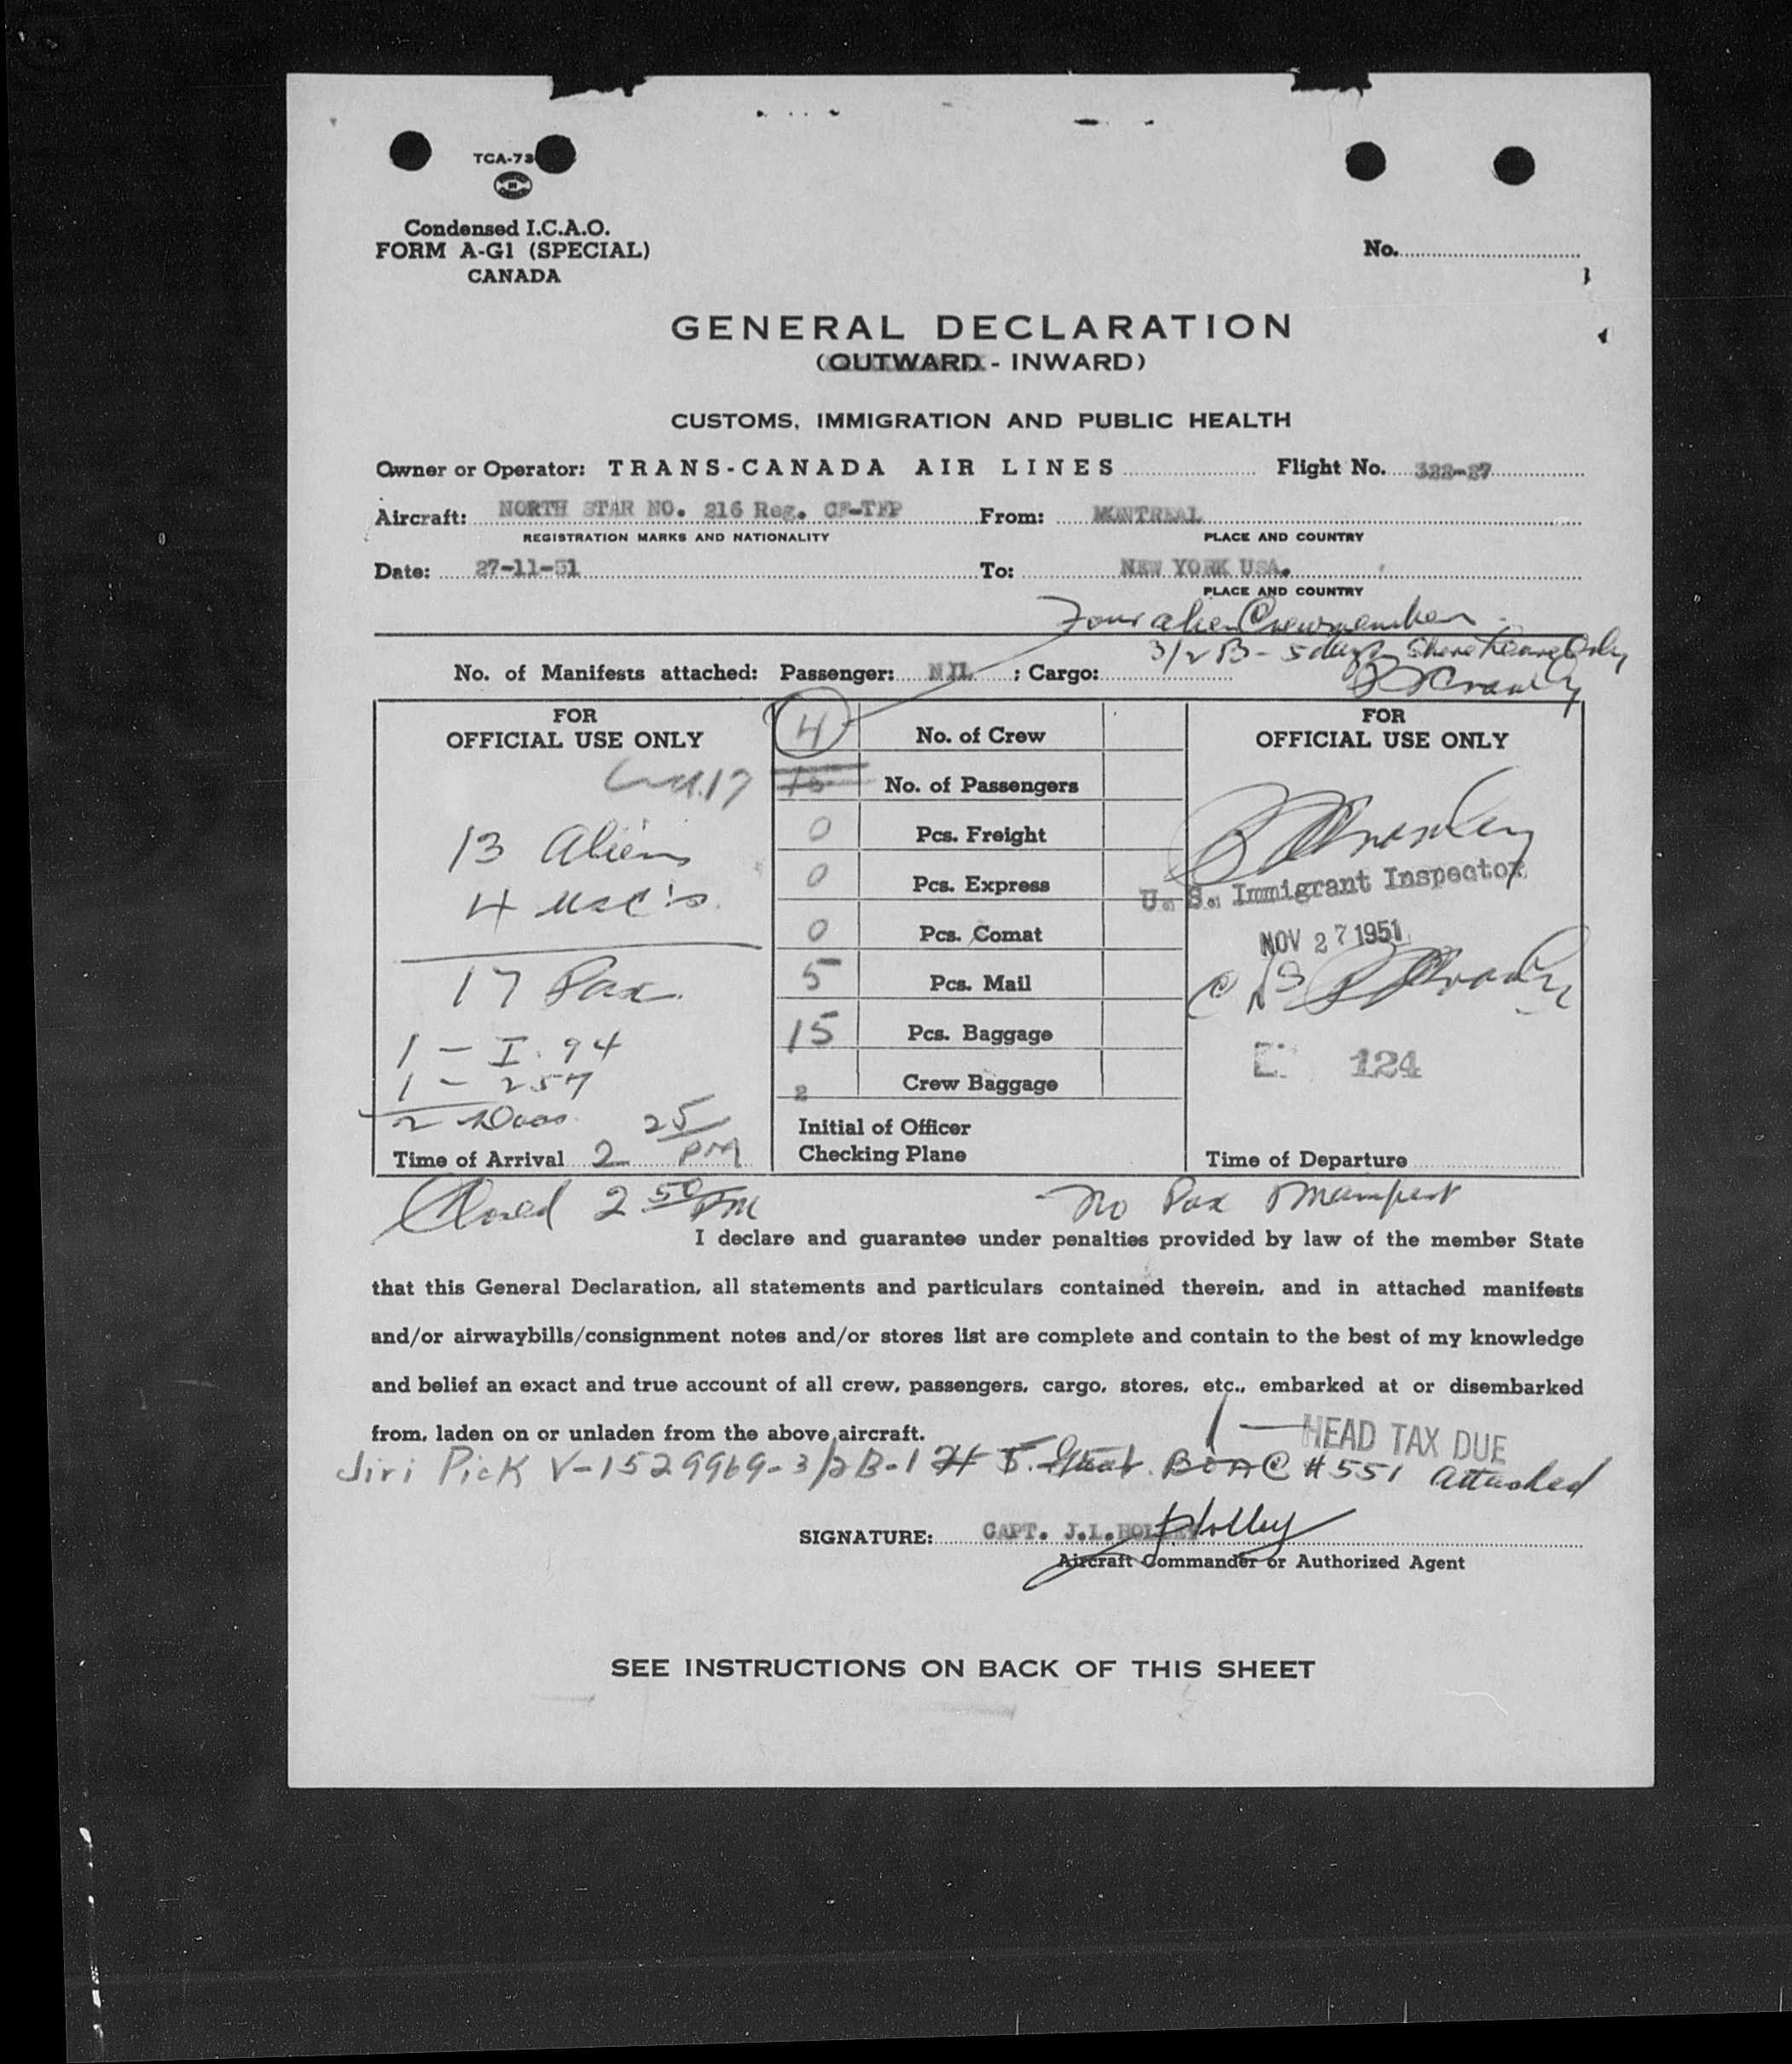 TCA-73
Condensed I.C.A.O.
FORM A-G1 (SPECIAL)
CANADA
No.
GENERAL DECLARATION
(OUTWARD - INWARD)
CUSTOMS, IMMIGRATION AND PUBLIC HEALTH
Owner or Operator: TRANS-CANADA AIR LINES Flight No. 322-27
Aircraft: NORTH STAR NO. 216 Reg. CF-TFP From: MONTREAL
REGISTRATION MARKS AND NATIONALITY PLACE AND COUNTRY
Date: 27-11-51 To: NEW YORK USA.
PLACE AND COUNTRY
Four alien Crewmember
3/2 B - 5 days Shore Leave Only
No. of Manifests attached: Passenger: NIL ; Cargo:
FOR
OFFICIAL USE ONLY
4 No. of Crew
FOR
OFFICIAL USE ONLY
No. of Passengers
13 Aliens
4 USC's
17 Pax
1 - I. 94
1 - 257
2 Docs
Time of Arrival 2 25 PM
0 Pcs. Freight
0 Pcs. Express
0 Pcs. Comat
5 Pcs. Mail
15 Pcs. Baggage
2 Crew Baggage
Initial of Officer
Checking Plane
U. S. Immigrant Inspector
NOV 27 1951
124
Time of Departure
Closed 2 50 PM No Pax Manifest
I declare and guarantee under penalties provided by law of the member State
that this General Declaration, all statements and particulars contained therein, and in attached manifests
and/or airwaybills/consignment notes and/or stores list are complete and contain to the best of my knowledge
and belief an exact and true account of all crew, passengers, cargo, stores, etc., embarked at or disembarked
from, laden on or unladen from the above aircraft.
1 — HEAD TAX DUE
Jiri Pick V-1529969-3/2B-1 BOAC #551 attached
SIGNATURE: CAPT. J.L. HOLLEY Holley
Aircraft Commander or Authorized Agent
SEE INSTRUCTIONS ON BACK OF THIS SHEET